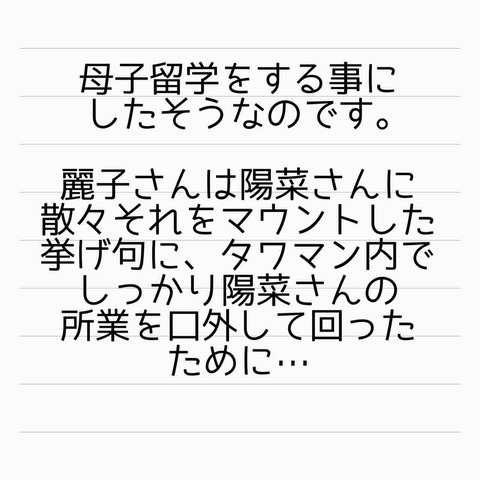 母子留学をする事に
したそうなのです。
麗子さんは陽菜さんに
散々それをマウントした
挙げ句に、タワマン内で
しっかり陽菜さんの
所業を口外して回った
ために…